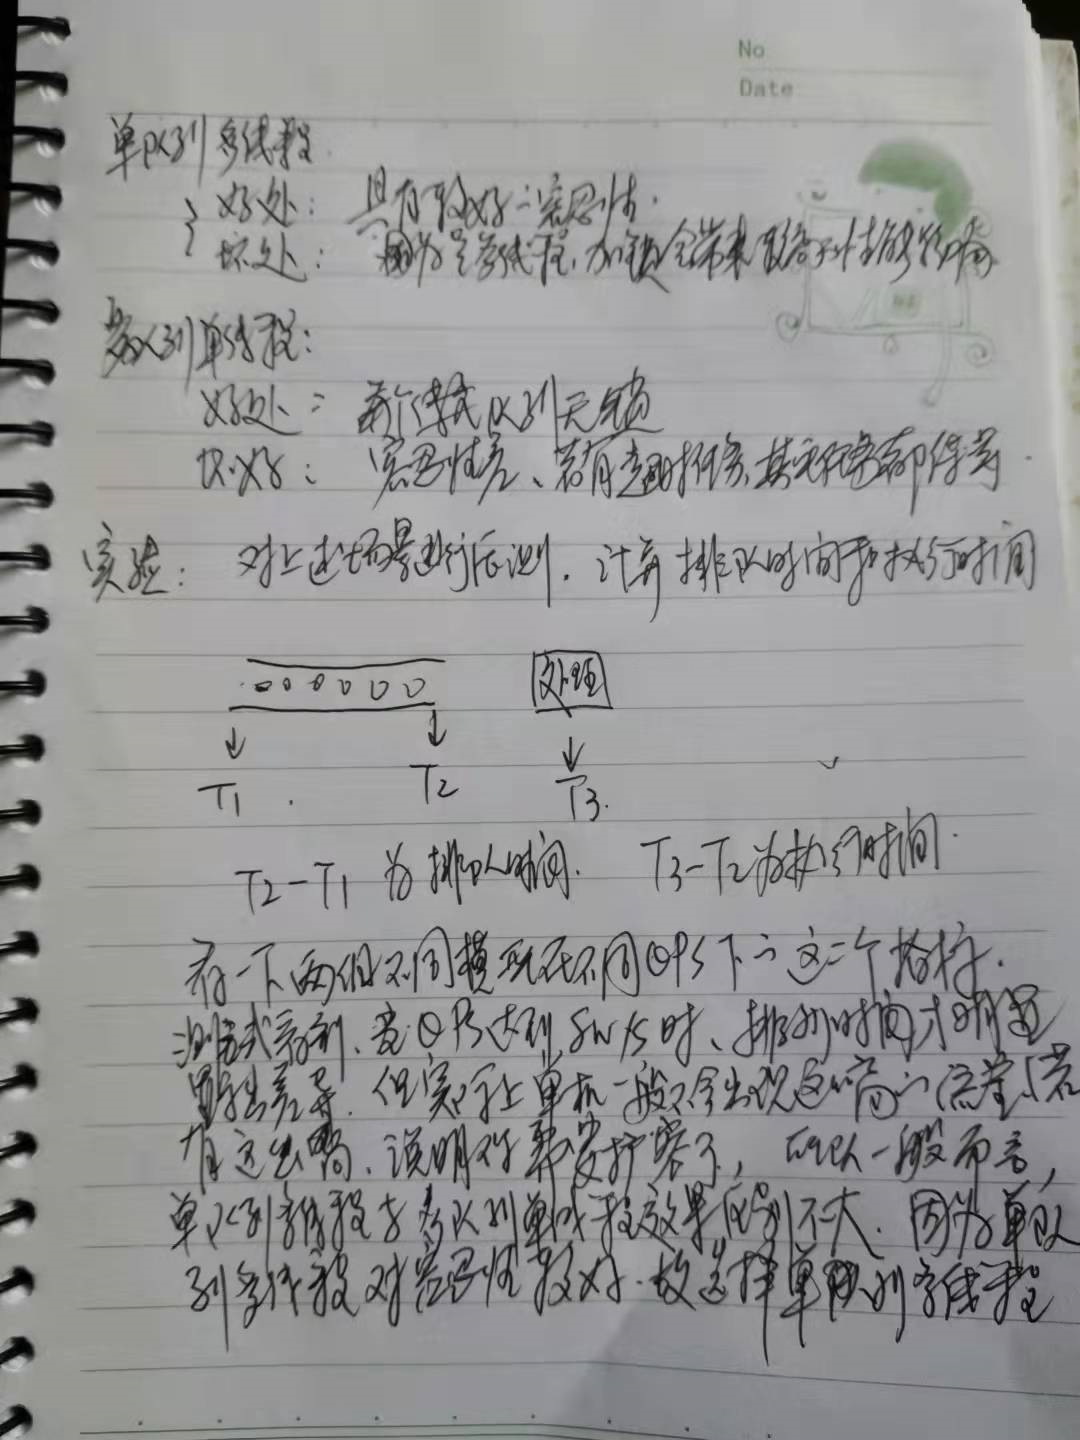 No
Date
单队列多线程
好处: 具有较好的容忍性.
坏处: 因为是多线程, 加锁会带来 性能影响
多队列单线程:
好处: 每个线程队列无锁
坏处: 容忍性差、若有 任务, 其它任务都得等.
实验: 对上述场景进行压测. 计算排队时间和执行时间
处理
T1 T2 T3.
T2-T1 为排队时间. T3-T2为执行时间.
看一下两组不同模型在不同QPS下的这二个指标.
测试 , 当QPS达到5W/s时、排队时间才明显
显出差异. 但实际上单机一般不会出现这么高的流量(若
有这么高, 说明 要扩容了, 所以一般而言,
单队列多线程与多队列单线程效果区别不大. 因为单队
列多线程对容忍性较好. 故选择单队列多线程